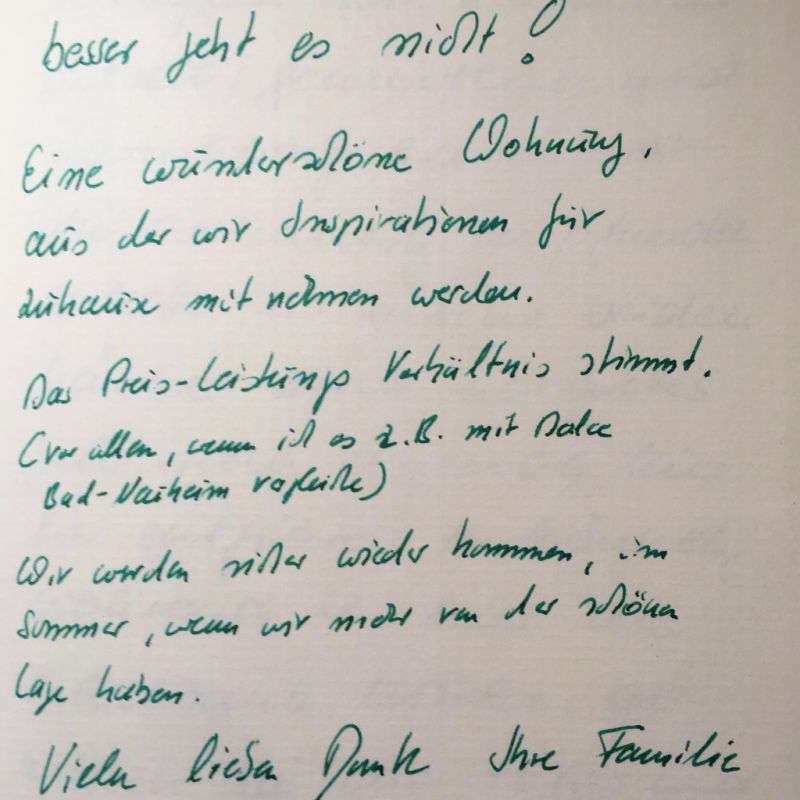 besser geht es nicht!
Eine wunderschöne Wohnung,
aus der wir Inspirationen für
zuhause mit nehmen werden.
Das Preis-Leistungs Verhältnis stimmt.
(vor allem, wenn ich es z.B. mit
Bad-Nauheim vergleiche)
Wir werden sicher wieder kommen, im
Sommer, wenn wir mehr von der schönen
Lage haben.
Vielen lieben Dank Ihre Familie